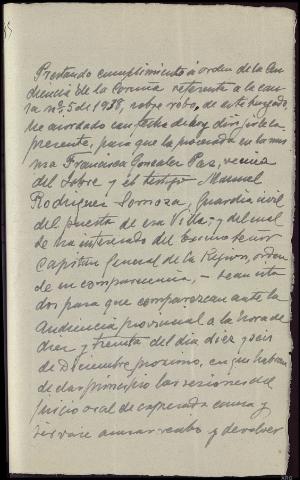 Prestando cumplimiento á orden de la Au
diencia de la Coruña referente a la cau
sa nº 5 de 1938, sobre robo, de este Juzgado,
he acordado con fecha de hoy dirigirle la
presente, para que la procesada en la mis
ma Francisca Gonzalez Paz, vecina
del Sobre y el testigo Manuel
Rodriguez Somoza, Guardia civil
del puesto de esa Villa; y del cual
se ha interesado del Excmo señor
Capitan General de la Region, orden
de su comparecencia, - sean cita
dos para que comparezcan ante la
Audiencia provincial a la hora de
diez y treinta del dia diez y seis
de Diciembre proximo, en que habran
de dar principio las sesiones del
juicio oral de expresada causa y
sirvase acusar recibo y devolver